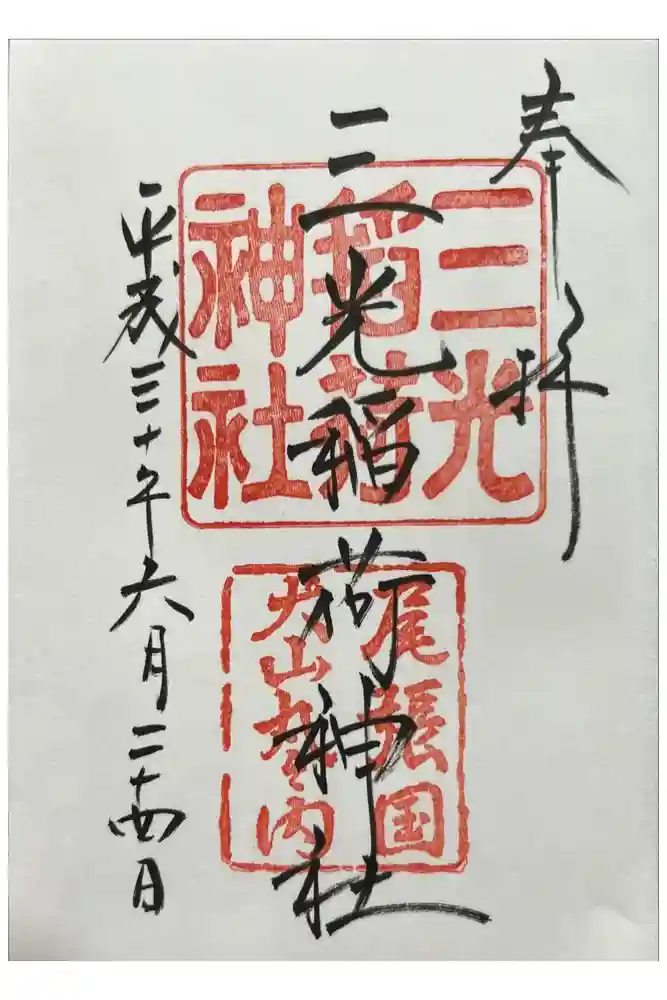 奉拝
三光稲荷神社
平成三十年六月二十四日
三光
稲荷
神社
尾張国
犬山丸之内